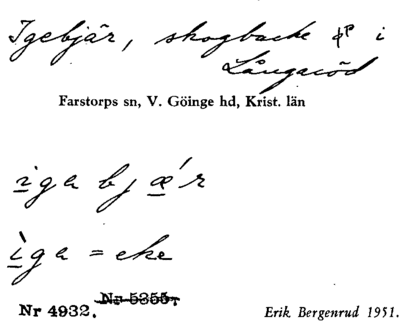 Igebjär, skogbacke i
Långaröd
Farstorps sn, V. Göinge hd, Krist. län
i̲ga bjǽ̲r
ì̲ga = eke
Nr 5355,
Nr 4932.
Erik Bergenrud 1951.